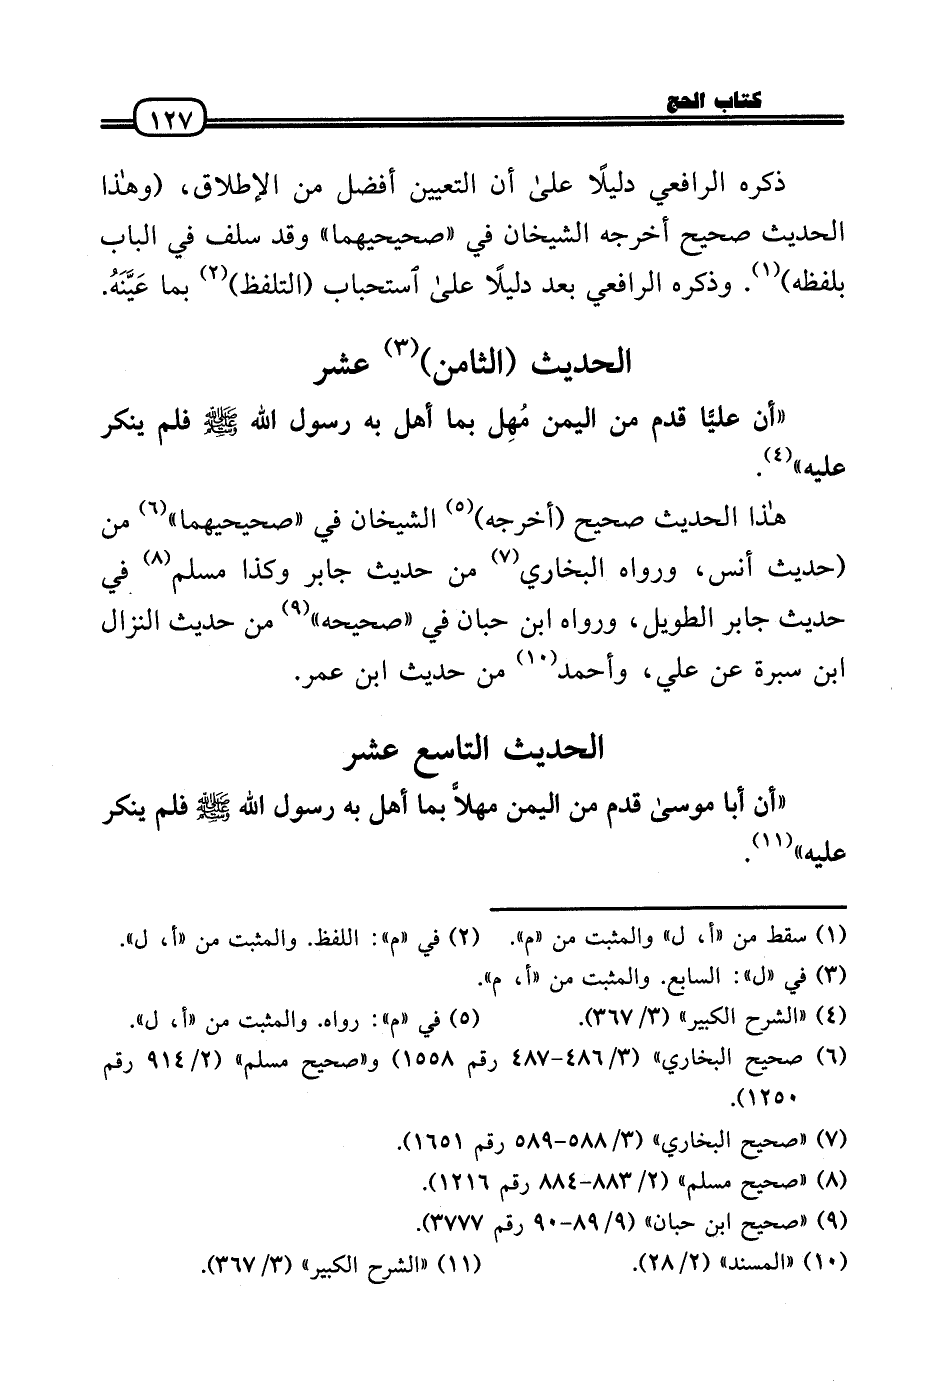 كتاب الحج
١٢٧
ذكره الرافعي دليلًا علىٰ أن التعيين أفضل من الإطلاق، (وهٰذا
الحديث صحيح أخرجه الشيخان في «صحيحيهما» وقد سلف في الباب
بلفظه)(١). وذكره الرافعي بعد دليلًا علىٰ ٱستحباب (التلفظ)(٢) بما عَيَّنَهُ.
الحديث (الثامن)(٣) عشر
«أن عليًا قدم من اليمن مُهِل بما أهل به رسول الله ﷺ فلم ينكر
عليه»(٤).
هٰذا الحديث صحيح (أخرجه)(٥) الشيخان في «صحيحيهما»(٦) من
(حديث أنس، ورواه البخاري(٧) من حديث جابر وكذا مسلم(٨) في
حديث جابر الطويل، ورواه ابن حبان في «صحيحه»(٩) من حديث النزال
ابن سبرة عن علي، وأحمد(١٠) من حديث ابن عمر.
الحديث التاسع عشر
«أن أبا موسىٰ قدم من اليمن مهلاً بما أهل به رسول الله ﷺ فلم ينكر
عليه»(١١).
(١) سقط من «أ، ل» والمثبت من «م». (٢) في «م»: اللفظ. والمثبت من «أ، ل».
(٣) في «ل»: السابع. والمثبت من «أ، م».
(٤) «الشرح الكبير» (٣/ ٣٦٧). (٥) في «م»: رواه. والمثبت من «أ، ل».
(٦) صحيح البخاري» (٣/ ٤٨٦-٤٨٧ رقم ١٥٥٨) و«صحيح مسلم» (٢/ ٩١٤ رقم
١٢٥٠).
(٧) «صحيح البخاري» (٣/ ٥٨٨-٥٨٩ رقم ١٦٥١).
(٨) «صحيح مسلم» (٢/ ٨٨٣-٨٨٤ رقم ١٢١٦).
(٩) «صحيح ابن حبان» (٩/ ٨٩-٩٠ رقم ٣٧٧٧).
(١٠) «المسند» (٢/ ٢٨). (١١) «الشرح الكبير» (٣/ ٣٦٧).